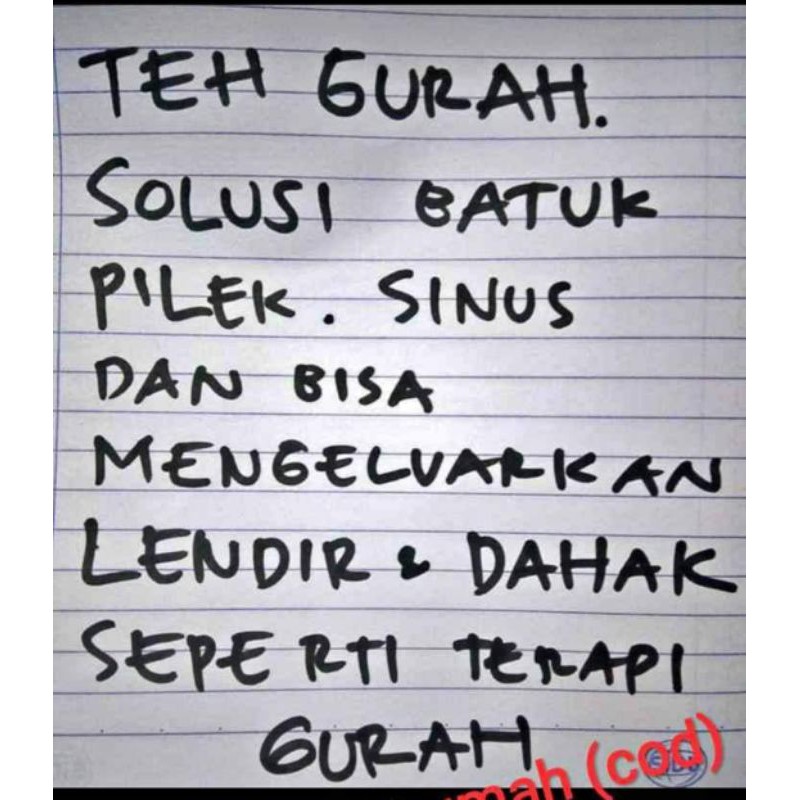 TEH GURAH.
SOLUSI BATUK
PILEK. SINUS
DAN BISA
MENGELUARKAN
LENDIR & DAHAK
SEPERTI TERAPI
GURAH
(cod)